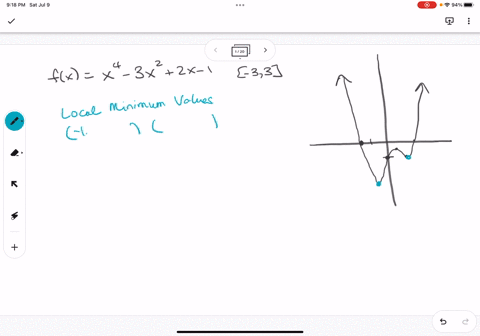 9:16 PM Sat Jul 9
94%
1/20
f(x) = x⁴ - 3x² + 2x - 1 [-3,3]
Local Minimum Values
(-1. ) ( )